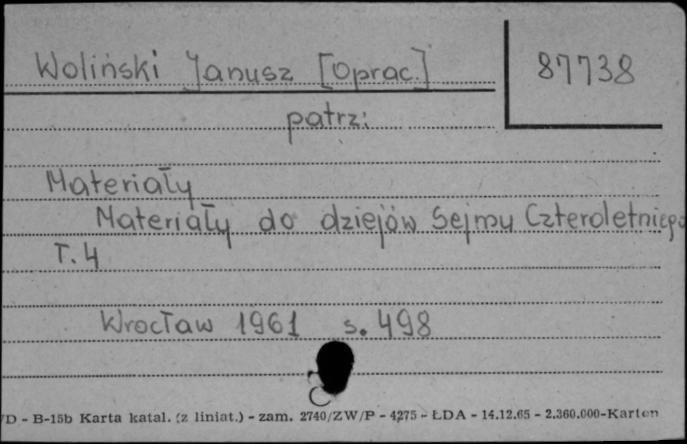 Woliński Janusz [oprac.]
87738
patrz:
Materiały
Materiały do dziejów Sejmu Czteroletniego
T. 4
Wrocław 1961 s. 498
/D - B-15b Karta katal. (z liniat.) - zam. 2740/ZW/P - 4275 - ŁDA - 14.12.65 - 2.360.000-Karton